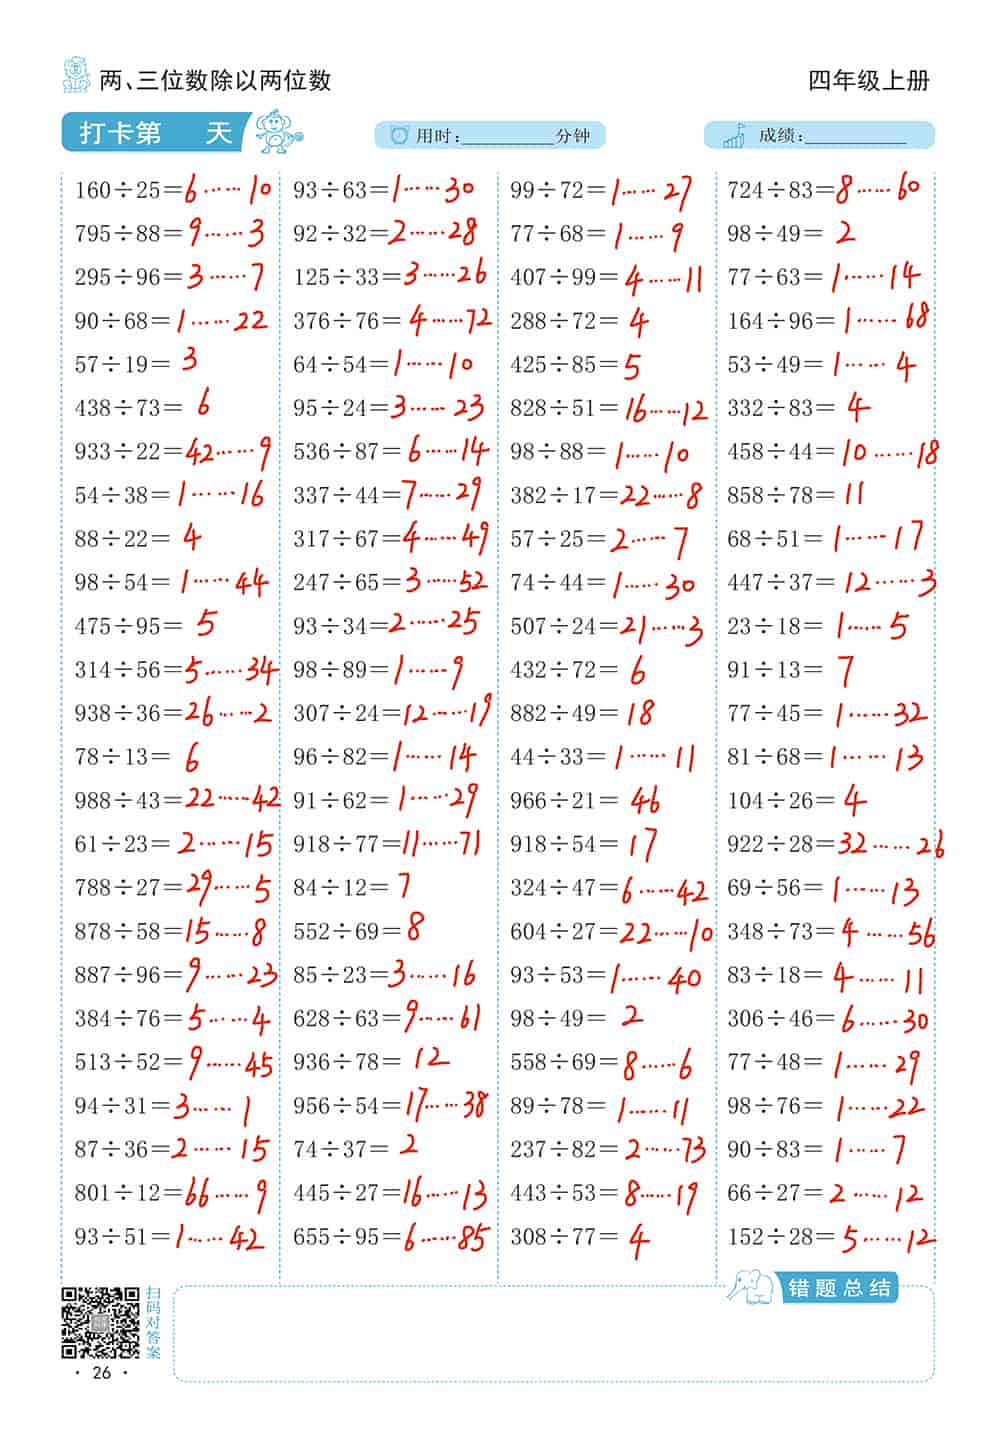 两、三位数除以两位数
四年级上册
打卡第 天
用时:__________分钟
成绩:__________
160÷25=6……10 93÷63=1……30 99÷72=1……27 724÷83=8……60
795÷88=9……3 92÷32=2……28 77÷68=1……9 98÷49=2
295÷96=3……7 125÷33=3……26 407÷99=4……11 77÷63=1……14
90÷68=1……22 376÷76=4……72 288÷72=4 164÷96=1……68
57÷19=3 64÷54=1……10 425÷85=5 53÷49=1……4
438÷73=6 95÷24=3……23 828÷51=16……12 332÷83=4
933÷22=42……9 536÷87=6……14 98÷88=1……10 458÷44=10……18
54÷38=1……16 337÷44=7……29 382÷17=22……8 858÷78=11
88÷22=4 317÷67=4……49 57÷25=2……7 68÷51=1……17
98÷54=1……44 247÷65=3……52 74÷44=1……30 447÷37=12……3
475÷95=5 93÷34=2……25 507÷24=21……3 23÷18=1……5
314÷56=5……34 98÷89=1……9 432÷72=6 91÷13=7
938÷36=26……2 307÷24=12……19 882÷49=18 77÷45=1……32
78÷13=6 96÷82=1……14 44÷33=1……11 81÷68=1……13
988÷43=22……42 91÷62=1……29 966÷21=46 104÷26=4
61÷23=2……15 918÷77=11……71 918÷54=17 922÷28=32……26
788÷27=29……5 84÷12=7 324÷47=6……42 69÷56=1……13
878÷58=15……8 552÷69=8 604÷27=22……10 348÷73=4……56
887÷96=9……23 85÷23=3……16 93÷53=1……40 83÷18=4……11
384÷76=5……4 628÷63=9……61 98÷49=2 306÷46=6……30
513÷52=9……45 936÷78=12 558÷69=8……6 77÷48=1……29
94÷31=3……1 956÷54=17……38 89÷78=1……11 98÷76=1……22
87÷36=2……15 74÷37=2 237÷82=2……73 90÷83=1……7
801÷12=66……9 445÷27=16……13 443÷53=8……19 66÷27=2……12
93÷51=1……42 655÷95=6……85 308÷77=4 152÷28=5……12
扫码对答案
错题总结
· 26 ·